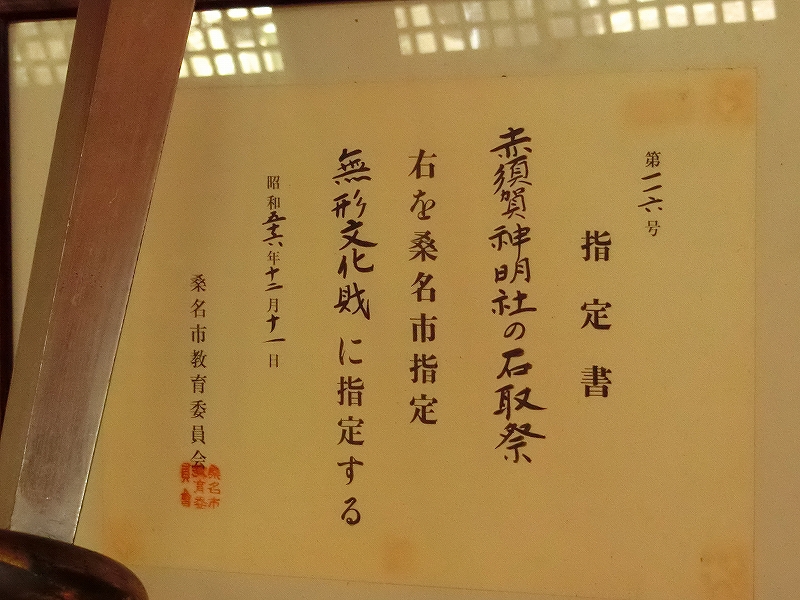 第一一六号
指定書
赤須賀神明社の石取祭
右を桑名市指定
無形文化財に指定する
昭和五十六年十二月十一日
桑名市教育委員会
桑名市
教育委
員會